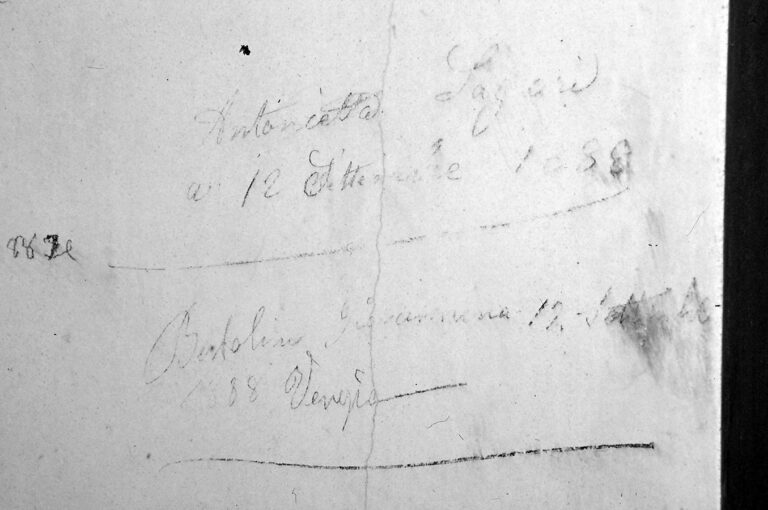 Antonietta Lageri
a 12 Settembre 1888
Bertolin Giovannina 12 Settembre
1888 Venezia